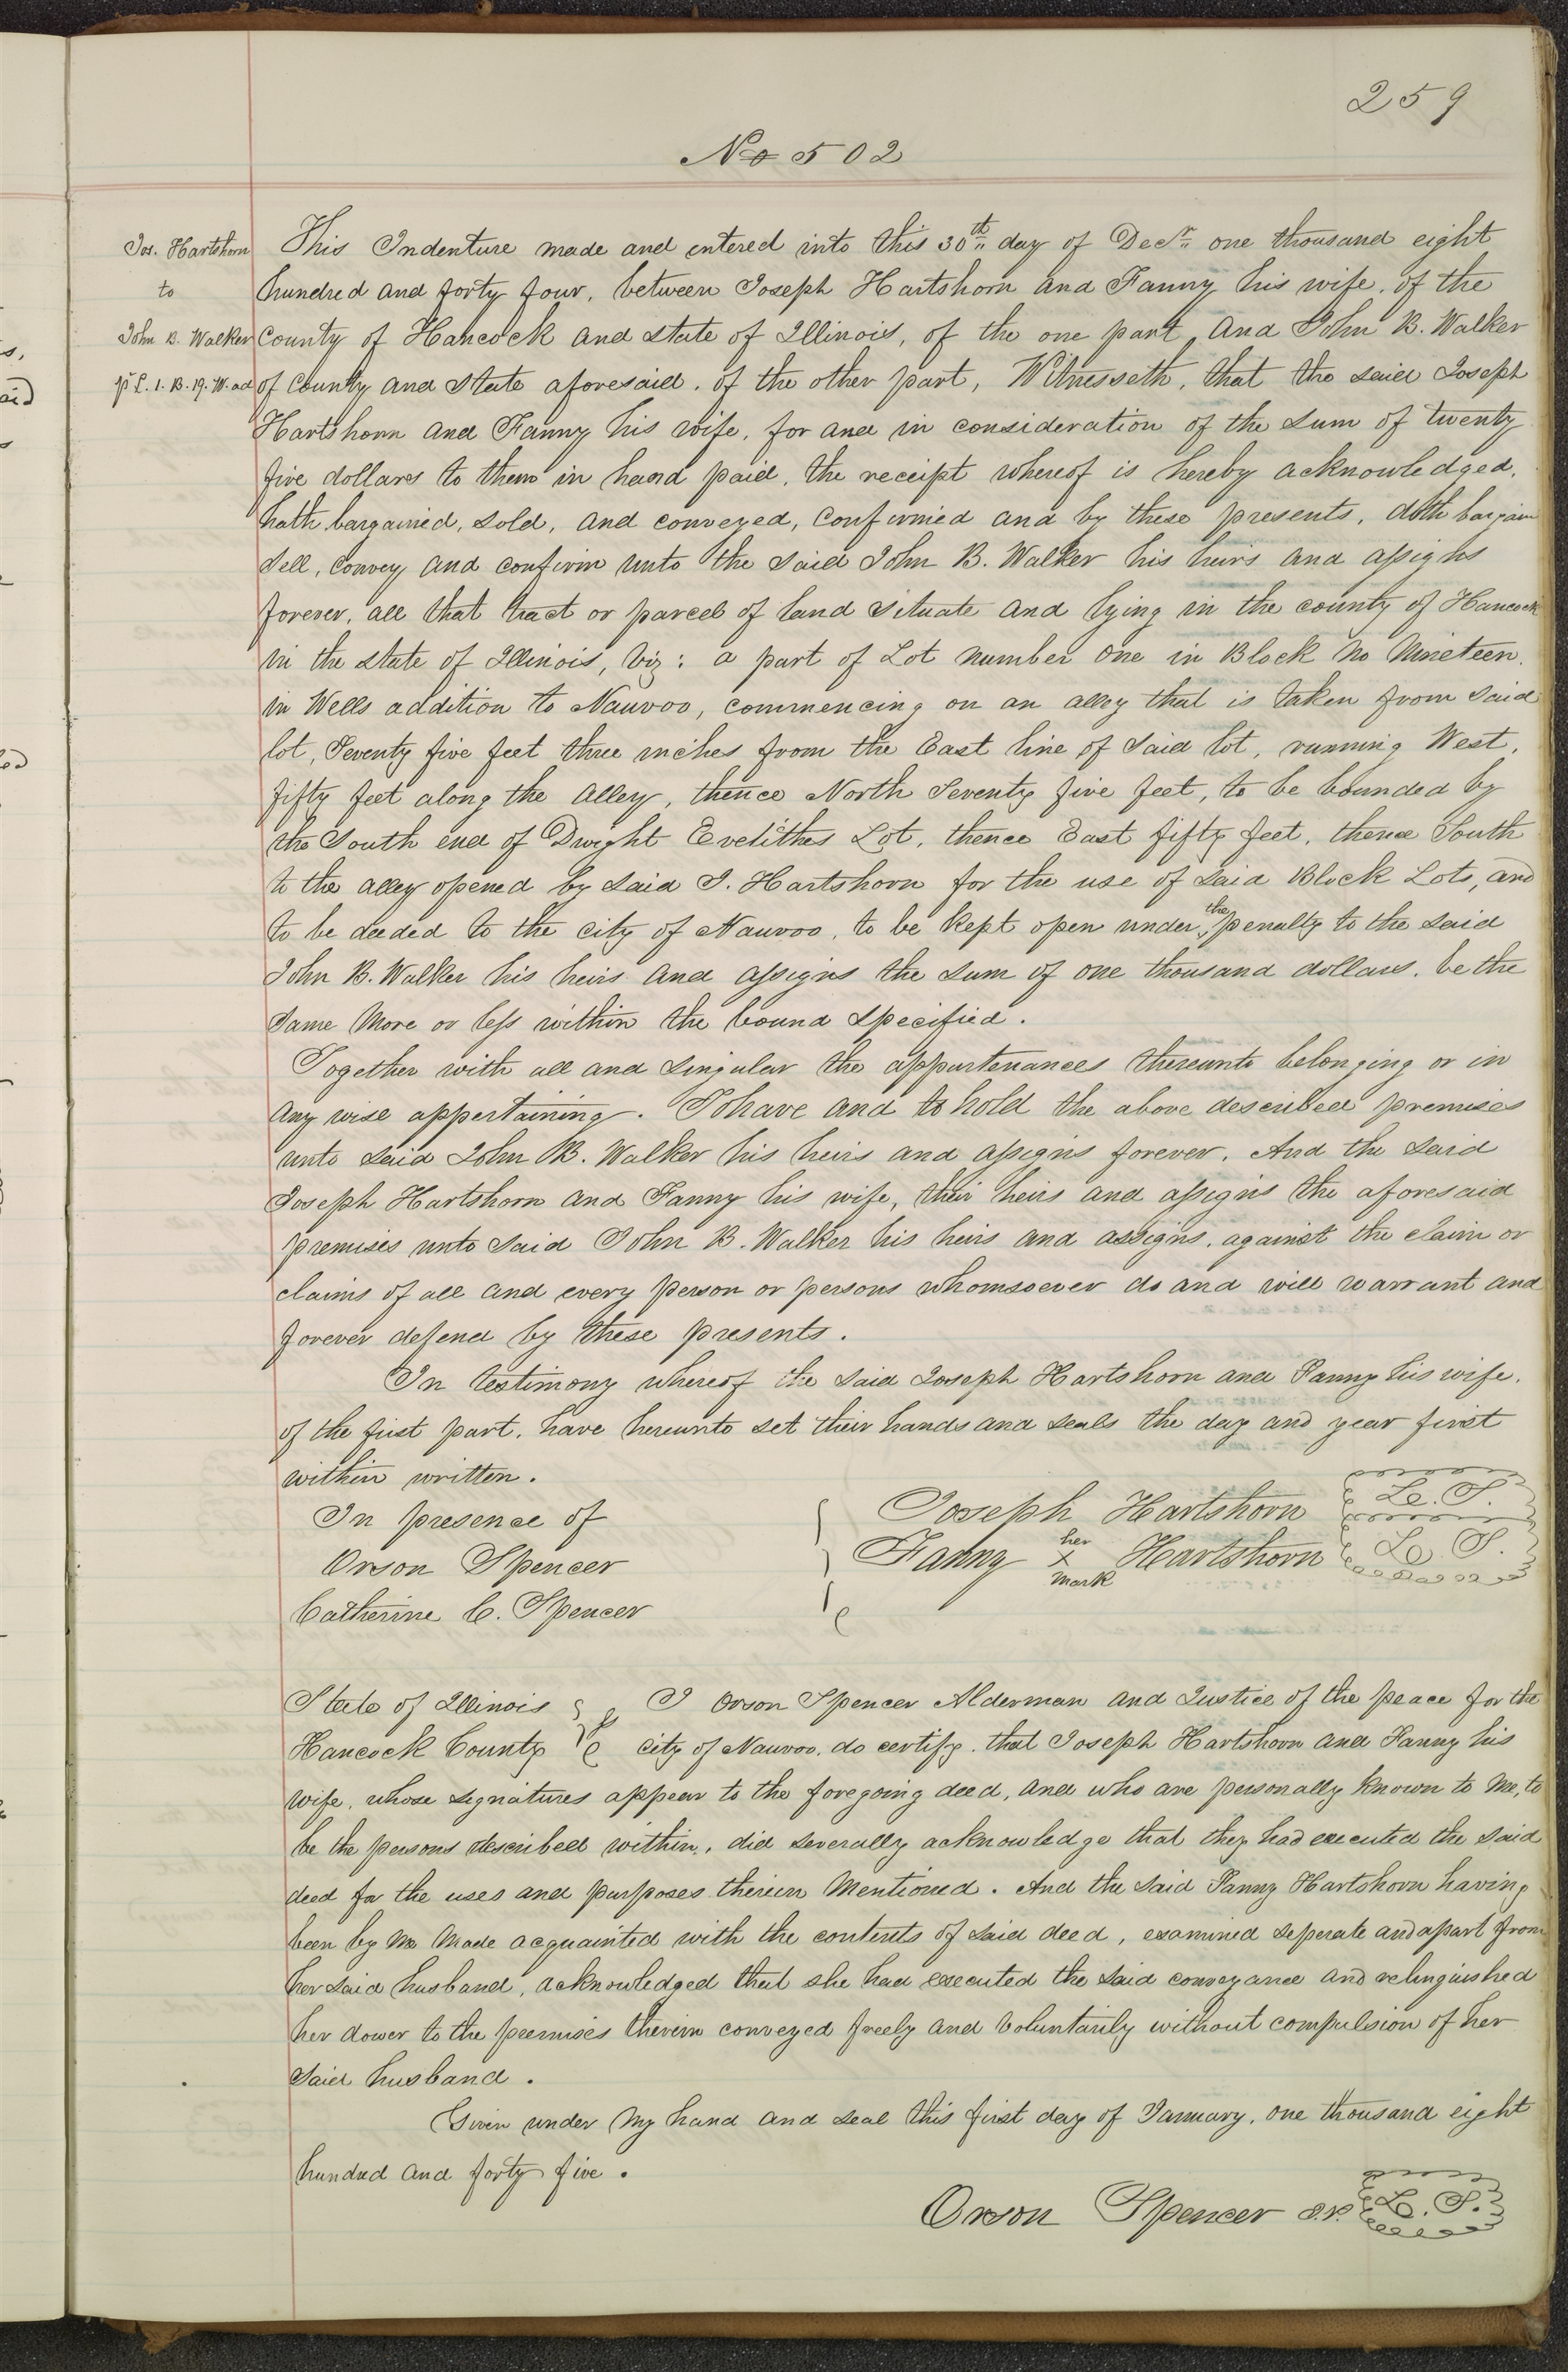 259
No 502
Jos. Hartshorn
to
John B. Walker
pt L. 1. B. 19. W. ad
This Indenture made and entered into this 30th day of Decr. one thousand eight
hundred and forty four, between Joseph Hartshorn and Fanny his wife, of the
County of Hancock and State of Illinois, of the one part, And John B. Walker
of County and State aforesaid, of the other part, Witnesseth, that the said Joseph
Hartshorn and Fanny his wife, for and in consideration of the sum of twenty
five dollars to them in hand paid, the receipt whereof is hereby acknowledged,
hath bargained, sold, and conveyed, Confirmed and by these presents, doth bargain
sell, Convey and confirm unto the said John B. Walker his heirs and assigns
forever, all that tract or parcel of land situate and lying in the county of Hancock
in the state of Illinois, viz: a part of Lot number one in Block No Nineteen.
in Wells addition to Nauvoo, commencing on an alley that is taken from said
lot, Seventy five feet three inches from the East line of said lot, running West,
fifty feet along the Alley, thence North Seventy five feet, to be bounded by
the South end of Dwight Evelithes Lot, thence East fifty feet, thence South
to the alley opened by said J. Hartshorn for the use of said Block Lots, and
to be deeded to the city of Nauvoo, to be kept open under the penalty to the said
John B. Walker his heirs and assigns the sum of one thousand dollars. be the
same more or less within the bound specified.
Together with all and singular the appurtenances thereunto belonging or in
any wise appertaining. To have and to hold the above described premises
unto said John B. Walker his heirs and assigns forever. And the said
Joseph Hartshorn and Fanny his wife, their heirs and assigns the aforesaid
premises unto said John B. Walker his heirs and assigns, against the claim or
claims of all and every person or persons whomsoever do and will warrant and
forever defend by these presents.
In testimony whereof the said Joseph Hartshorn and Fanny his wife,
of the first part, have hereunto set their hands and seals the day and year first
within written.
In presence of
Orson Spencer
Catherine C. Spencer
Joseph Hartshorn L. S.
Fanny her x mark Hartshorn L. S.
State of Illinois
Hancock County
I Orson Spencer Alderman and Justice of the peace for the
city of Nauvoo, do certify, that Joseph Hartshorn and Fanny his
wife, whose signatures appear to the foregoing deed, and who are personally known to me, to
be the persons described within, did severally acknowledge that they had executed the said
deed for the uses and purposes therein mentioned. And the said Fanny Hartshorn having
been by me made acquainted with the contents of said deed, examined seperate and apart from
her said husband, acknowledged that she had executed the said conveyance and relinquished
her dower to the premises therein conveyed freely and voluntarily without compulsion of her
said husband.
Given under my hand and seal this first day of January, one thousand eight
hundred and forty five.
Orson Spencer J.P. L. S.